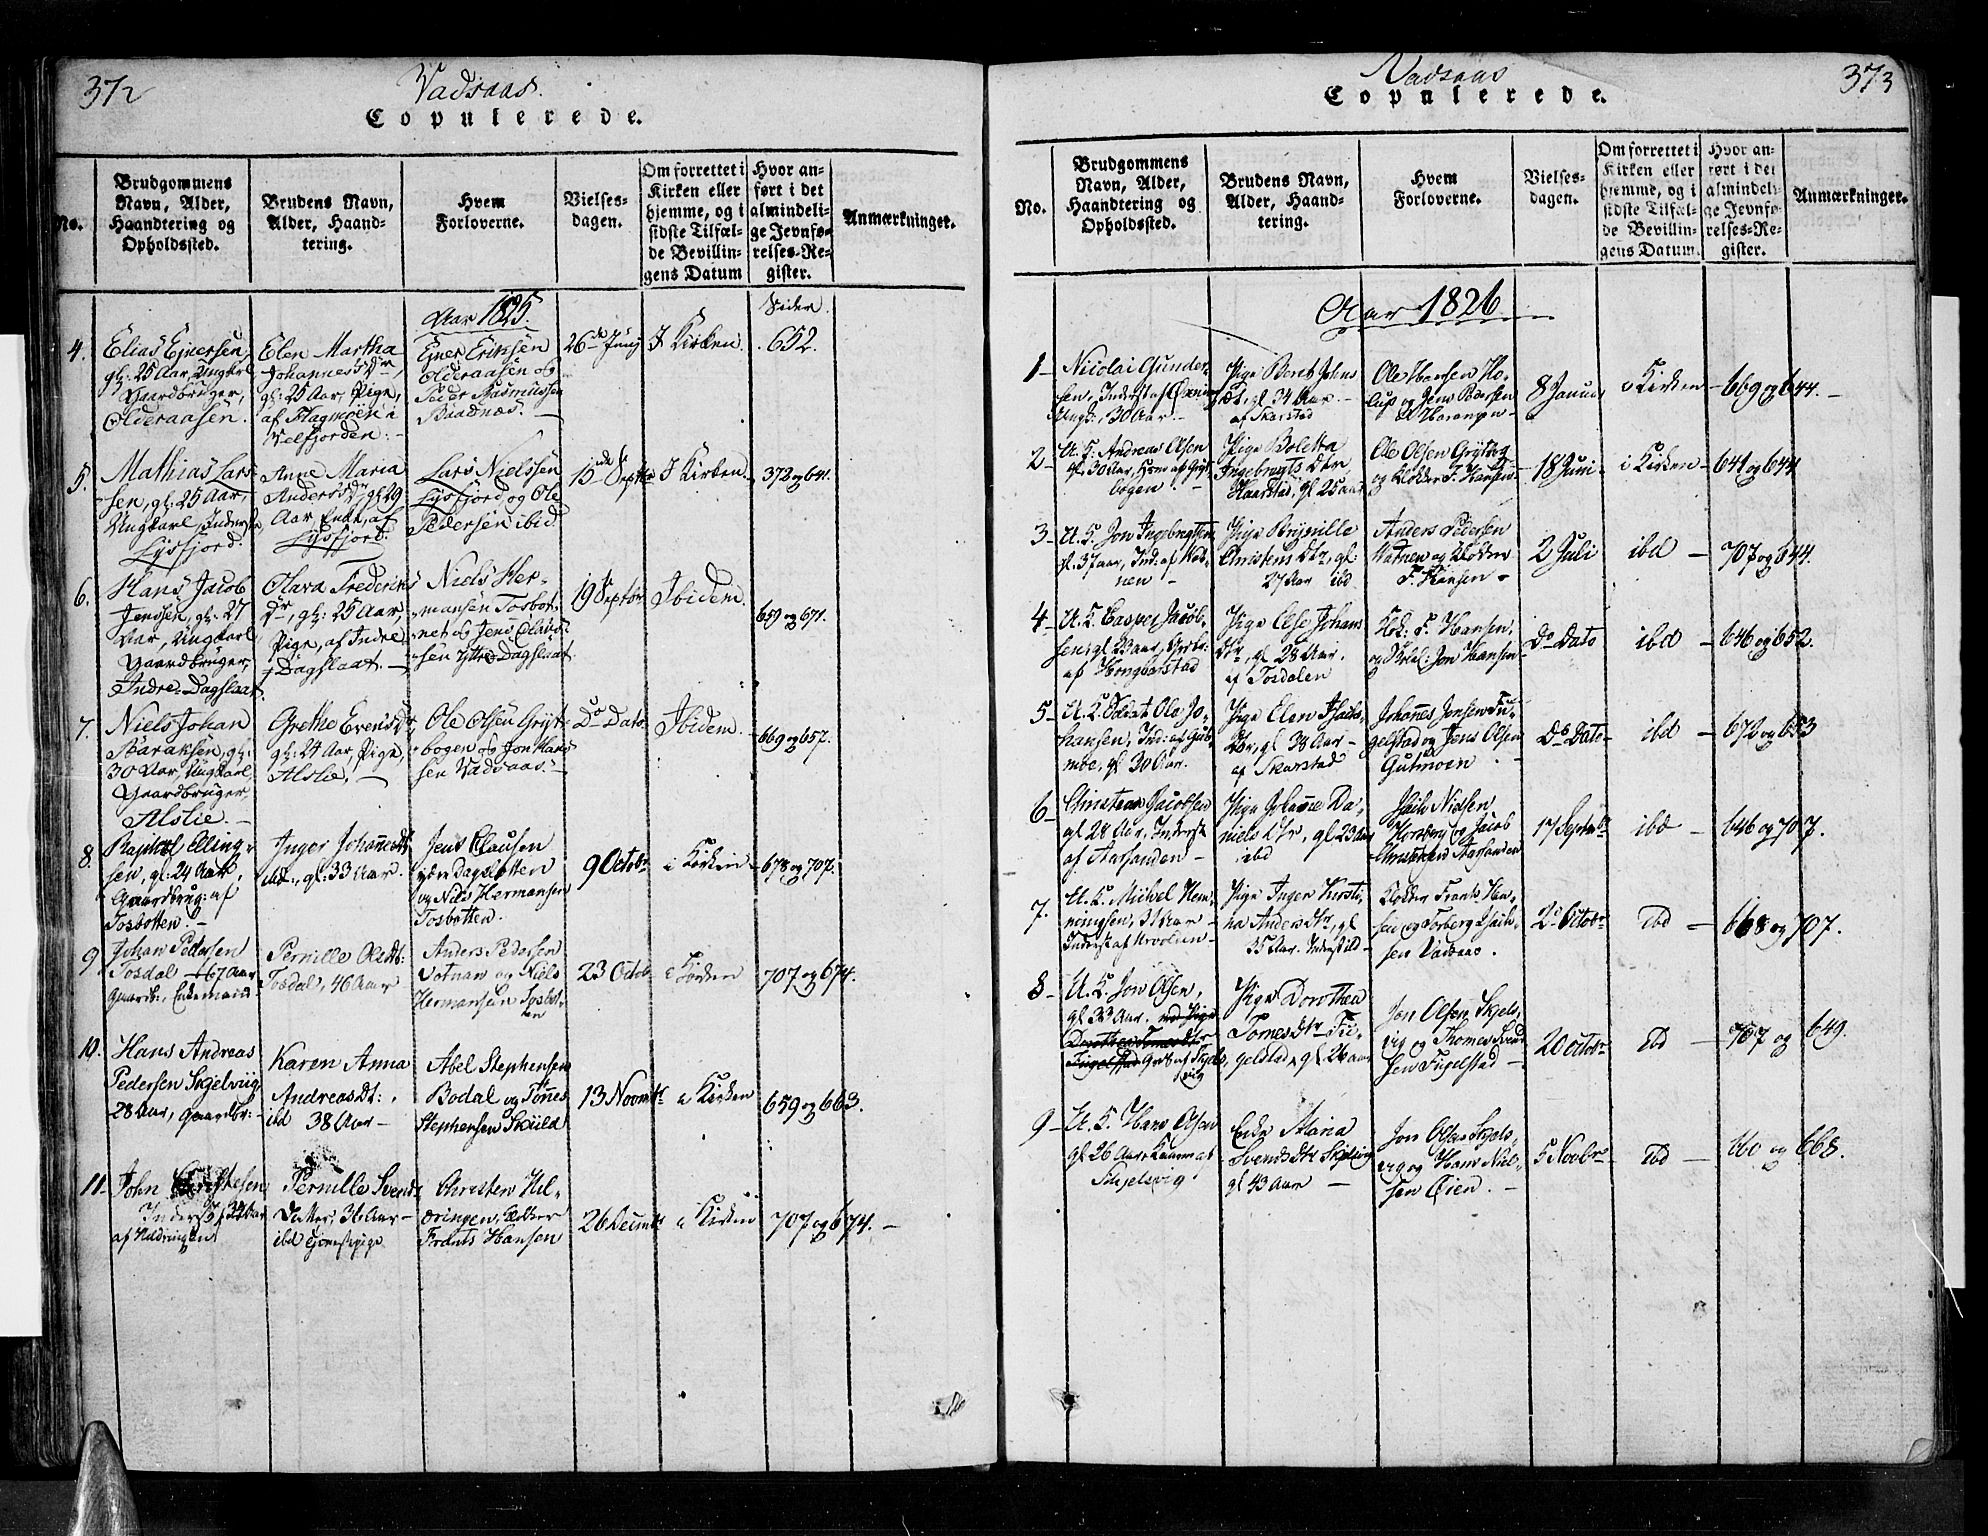 372
Vadsaas.
Copulerede.
No.
Brudgommens
Navn, Alder,
Haandtering og
Opholdssted.
Brudens Navn,
Alder, Haand-
tering.
Hvem
Forloverne.
Vielses-
dagen.
Om forrettet i
Kirken eller
hjemme, og i
sidste Tilfæl-
de Bevillin-
gens Datum
Hvor an-
ført i det
almindeli-
ge Jevnfø-
relses-Re-
gister.
Anmærkninger.
Aar 1825.
Sider.
4.
Elias Ejnersen,
gl: 25 Aar, Ungkarl
Gaardbruger,
Olderaasen.
Elen Martha
Johannesdr,
gl: 25 Aar, Pige,
af Flagmoen i
Velfjorden.
Ejner Eriksen
Olderaasen og
Peder Rasmussen
Baadnæs.
26de Junj
I Kirken.
652.
5.
Mathias Lars-
sen, gl: 25 Aar,
Ungkarl, Inderst,
Lysfjord.
Anne Maria
Andersdr, gl: 29
Aar, Enke, af
Lysfjord.
Lars Nielssen
Lysfjord og Ole
Pedersen ibid.
15de Septbr
I Kirken.
372 og 641.
6.
Hans Jacob
Jenssen, gl: 27
Aar, Ungkarl
Gaardbruger,
Indre Dagslaat.
Olava Frederiks
Dr, gl: 25 Aar,
Pige, af Indre
Dagslaat.
Niels Her-
mansen Tosbot-
net og Jens Olaus-
sen Yttre Dagslaat.
19 Septbr
Ibidem.
659 og 671.
7.
Niels Johan
Baraksen, gl:
30 Aar, Ungkarl,
Gaardbruger,
Alslie.
Grethe Evensdr
gl: 24 Aar, Pige,
Alslie.
Ole Olsen Gryt-
bogen og Jon Hans
sen Vadsaas.
Do Dato
Ibidem.
669 og 657.
8.
Raphael Elling-
sen, gl: 24 Aar,
Gaardbrug: af
Tosbotten
Inger Johannesdt
gl: 33 Aar.
Jens Clausen
Dagslotten
og Niels Hermansen
Tosbotten.
9 Octobr
i Kirken
678 og 707.
9
Johan Pedersen
Tosdal 67 Aar
Gaardb:, Enkemand
Pernille Olsdt:
Tosdal, 46 Aar
Anders Pedersen
Vatnen og Niels
Hermansen Tosbot-
ten
23 Octob
i Kirken
707 og 674.
10.
Hans Andreas
Pedersen Skjelviig
28 Aar, Gaardbr:
Karen Anna
Andreasdt:
ibd 38 Aar
Abel Stephensen
Bodal og Tønnes
Stephensen Skiild
13 Novmb
i Kirken
659 og 663.
11.
John
Inderst, 34 Aar
af Hildringen
Pernille Svends
Datter, 36 Aar
ibd Tjenestpige
Christen Hil-
dringen,
Frants Hansen
26 Decmbr
i Kirken
707 og 674.
373
Vadsaas
Copulerede.
No.
Brudgommens
Navn, Alder,
Haandtering og
Opholdssted.
Brudens Navn,
Alder, Haand-
tering.
Hvem
Forloverne.
Vielses-
dagen.
Om forrettet i
Kirken eller
hjemme, og i
sidste Tilfæl-
de Bevillin-
gens Datum.
Hvor an-
ført i det
almindeli-
ge Jevnfø-
relses-Re-
gister.
Anmærkninger.
Aar 1826
1
Nicolai Gunder-
sen, Inderst af
Ungk: 30 Aar
Pige Beret Johns
Dt, gl 34 Aar
af Skarstad
Ole Hansen Ho-
lup og Jens Pedersen
Harangen
8 Januar
i Kirken
669 og 644.
2
U. K. Andreas Olsen
gl. 30 Aar, Huusm af Gryt-
bogen
Pige Boletta
Ingebrigts Dtr
Haarstad, gl 25 aar
Ole Olsen Grytbog
og Klokker F. Hansen
18 Juni
i Kirken
641 og 644
3
U. K. Jon Ingebrigtsen
gl. 37 aar, Ind: af Vad-
nen
Pige Brynille
Christens Dtr, gl:
27 Aar ibd
Anders Pedersen
Vatnen og Klokker
F. Hansen
2 Juli
ibd
707 og 644.
4
U. K. Casper Jacob-
sen, gl 33 aar,
af Hongbarstad
Pige Else Johans
Dtr, gl 28 Aar.
af Tosdalen
Klok: F. Hansen
og Jon Hansen
Do Dato
ibd
646 og 652.
5
U. K. Soldat Ole Jo-
hansen, Ind: af
gl 30 Aar.
Pige Elen Isachs
Dtr, gl 34 Aar
af Skarstad
Johannes Jensen Fu-
gelstad og Jens Olsen
Gutmoen
Do Dato
ibd
672 og 653
6
Christian Jacobsen
gl 28 Aar, Inderst
af Aarsanden
Pige Johanne Da-
niels Dtr, gl 23 Aar
ibd
Isach Nielsen
Horsberg og Jacob
Christensen Aarsanden
17 Septembr
ibd
646 og 707.
7.
U. K. Michel Hem-
mingsen, 31 Aar
Inderst af
Pige Inger Kirsti-
na Anders Dtr, gl
35 Aar. Inderst ibd
Klokker Frants Han-
sen og Torberg Isach-
sen Vadsaas.
2 Octobr
Ibd
668 og 707.
8
U. K. Jon Olsen,
gl 33 Aar. med Pige
Dorothea Tomes Dtr
Fugelstad Gbr af Skjels-
vig
Pige Dorothea
Tomes Dtr Fu-
gelstad, gl 26 aar
Jon Olsen Skjels-
vig og Thomes Svend
sen Fugelstad
20 octobr
Ibd
707 og 649.
9
U. K. Hans Olsen
gl 26 Aar, af
Skjelsvig
Enke Maria
Svends Dtr Skjelsvig
gl 43 Aar
Jon Olsen Skjels-
vig og Hans Niel-
sen Øien.
5 Novbr
Ibd
660 og 668.